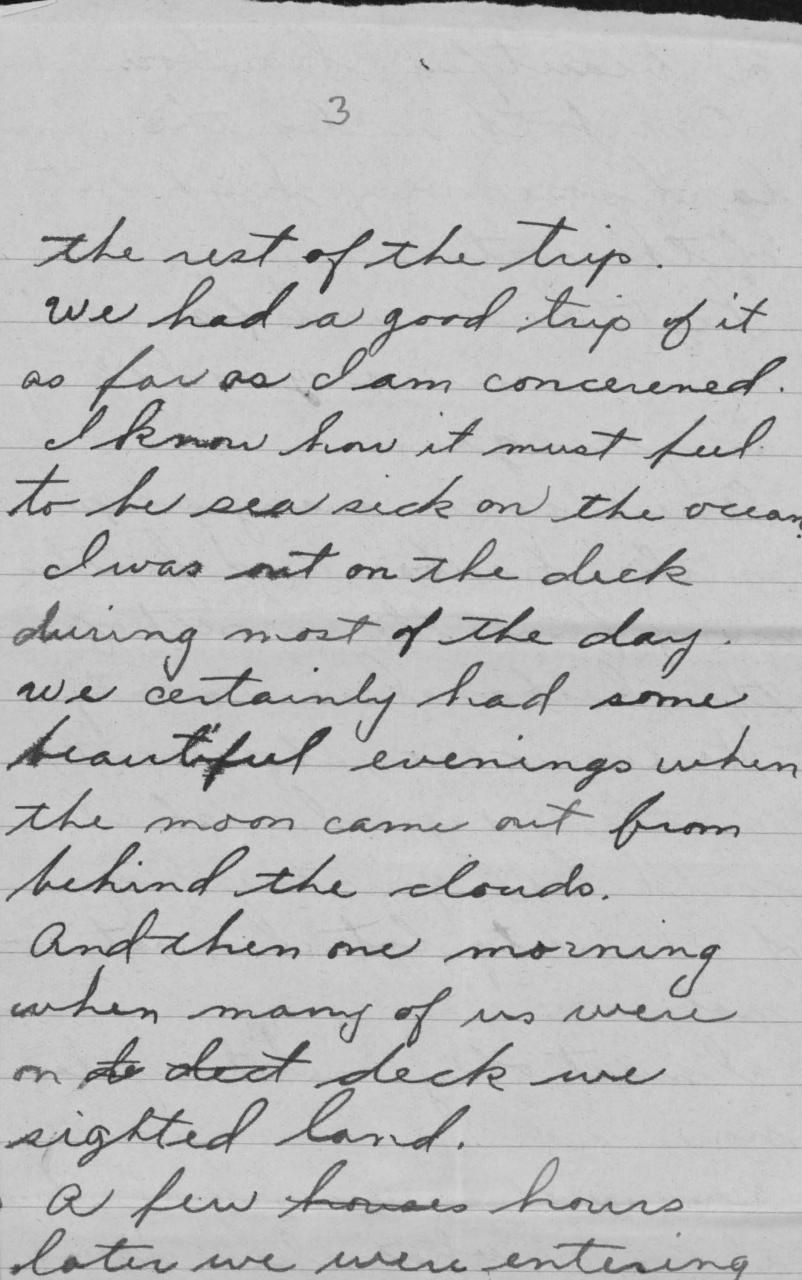 3
the rest of the trip.
we had a good trip of it
as far as I am concerened.
I know how it must feel
to be sea sick on the ocean.
I was out on the deck
during most of the day.
we certainly had some
beautiful evenings when
the moon came out from
behind the clouds.
And then one morning
when many of us were
on to dect deck we
sighted land.
A few houses hours
later we were entering